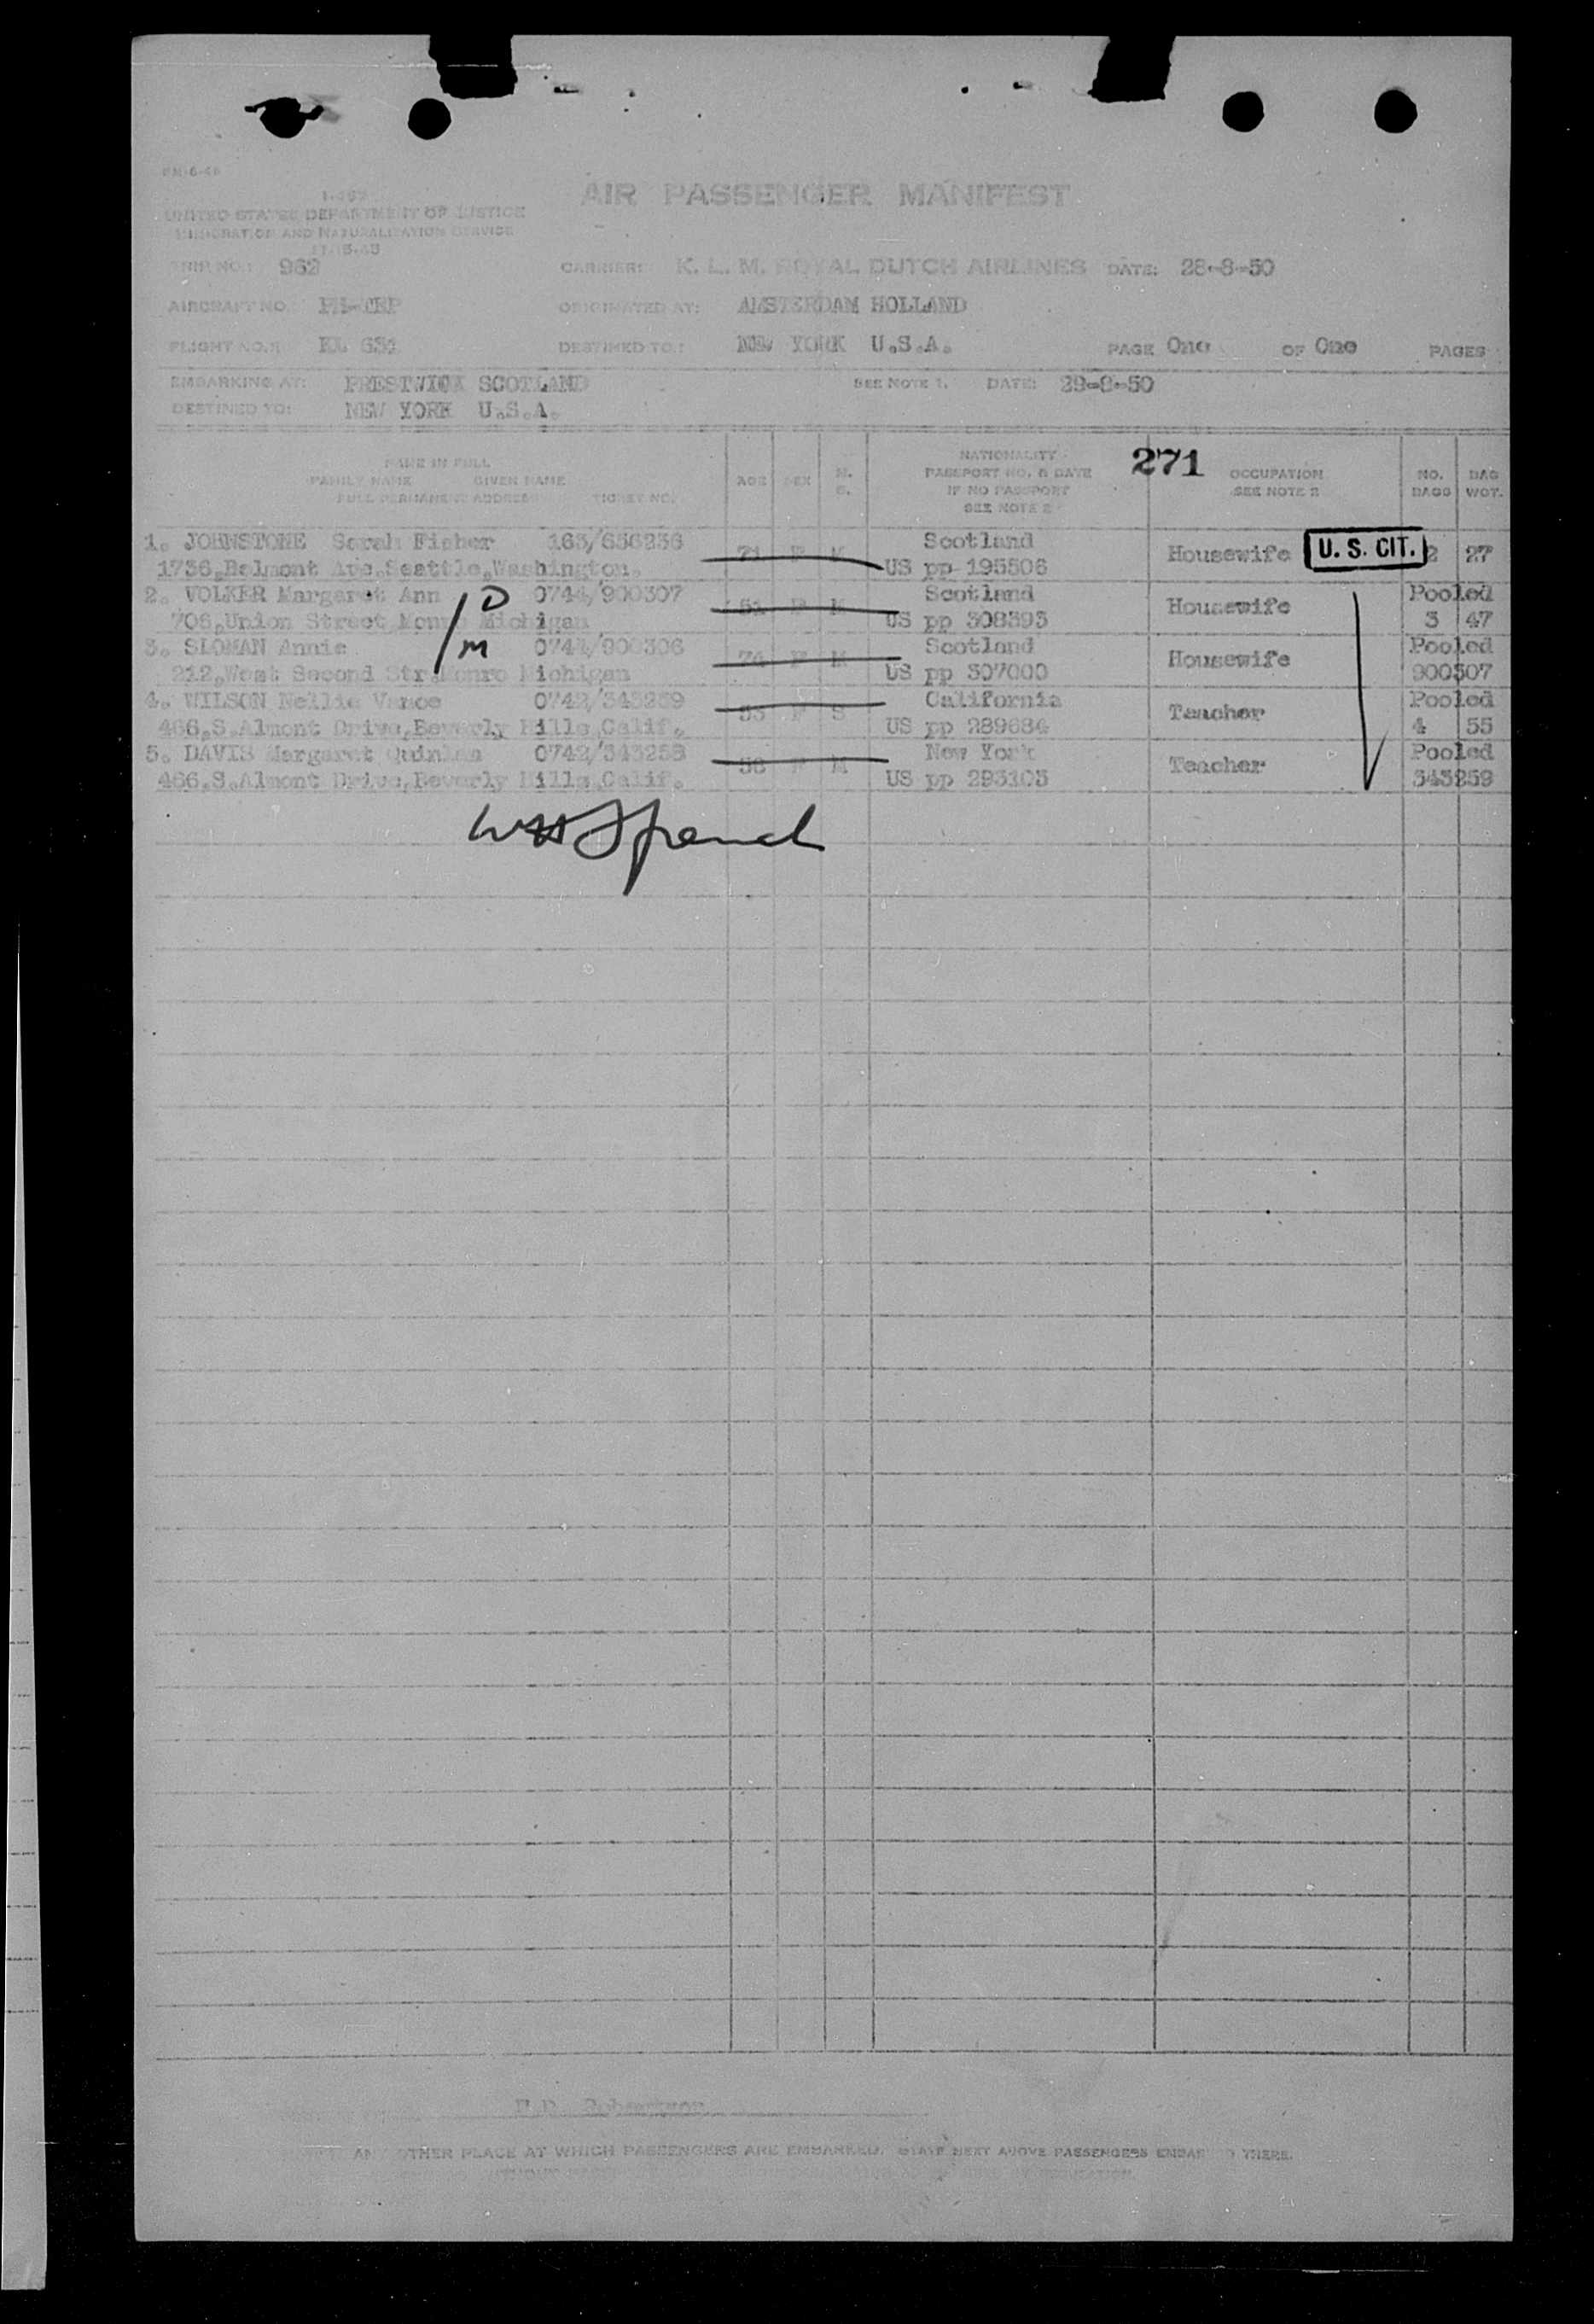 AIR PASSENGER MANIFEST
UNITED STATES DEPARTMENT OF JUSTICE
IMMIGRATION AND NATURALIZATION SERVICE
962 CARRIER: K. L. M. ROYAL DUTCH AIRLINES DATE: 28-8-50
AIRCRAFT NO. ORIGINATED AT: AMSTERDAM HOLLAND
FLIGHT NO.: KL 631 DESTINED TO.: NEW YORK U.S.A. PAGE One OF One PAGES
EMBARKING AT: PRESTWICK SCOTLAND SEE NOTE 1. DATE: 29-8-50
DESTINED TO: NEW YORK U.S.A.
271
NAME IN FULL
FAMILY NAME GIVEN NAME
FULL PERMANENT ADDRESS TICKET NO.
AGE SEX M. S.
NATIONALITY
PASSPORT NO. & DATE
IF NO PASSPORT
SEE NOTE 2
OCCUPATION
SEE NOTE 2
NO. BAGS
BAG WGT.
1. JOHNSTONE Sarah Fisher 163/656236 Scotland
1736,Belmont Ave,Seattle,Washington. 71 F M US pp 195506 Housewife U. S. CIT. 2 27
2. VOLKER Margaret Ann D 0744/900307 Scotland Pooled
706,Union Street Monro Michigan 51 F M US pp 308393 Housewife 3 47
3. SLOMAN Annie M 0744/900306 Scotland Pooled
212,West Second Str.Monro Michigan 74 F M US pp 307000 Housewife 900307
4. WILSON Nellie Vance 0742/343259 California Pooled
466,S.Almont Drive,Beverly Hills,Calif. 53 F S US pp 289684 Teacher 4 55
5. DAVIS Margaret Quinlan 0742/343258 New York Pooled
466,S.Almont Drive,Beverly Hills,Calif. 56 F M US pp 293103 Teacher 343259
Robertson
OTHER PLACE AT WHICH PASSENGERS ARE EMBARKED, STATE NEXT ABOVE PASSENGERS THERE.